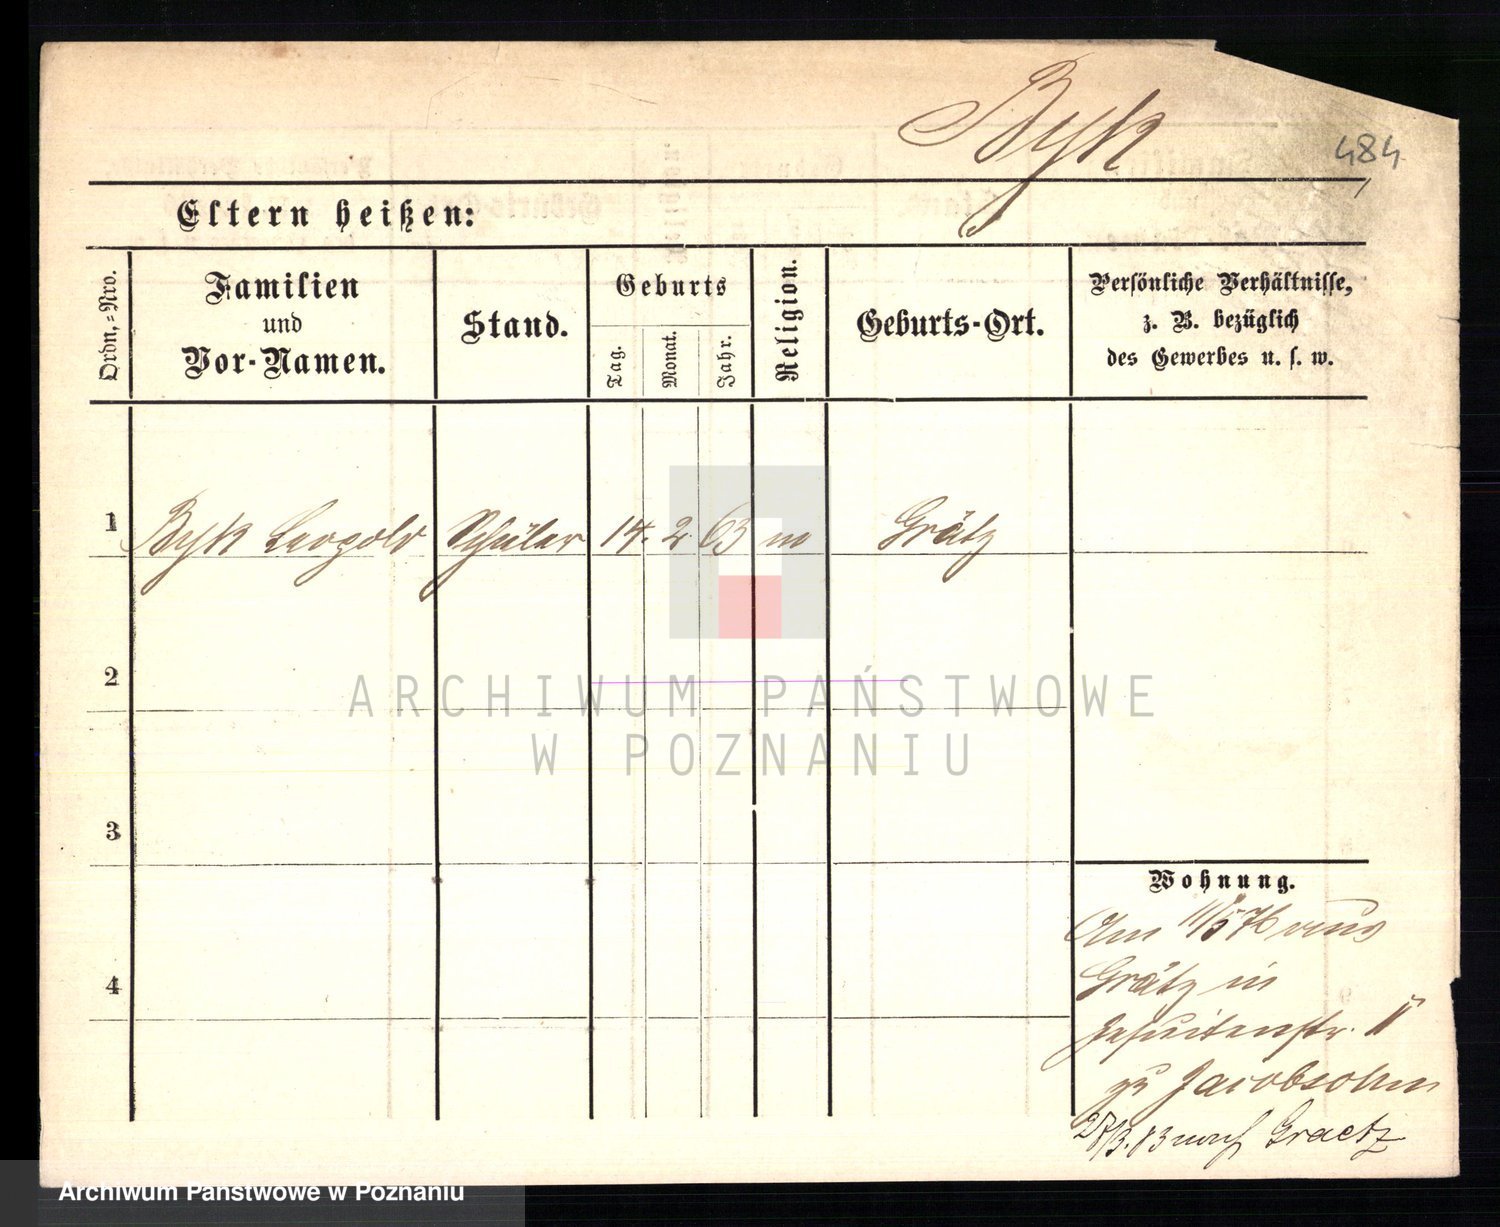 Byk
484
Eltern heißen:
Ordn.-Nro.
Familien
und
Vor-Namen.
Stand.
Geburts
Tag.
Monat.
Jahr.
Religion.
Geburts-Ort.
Persönliche Verhältnisse,
z. B. bezüglich
des Gewerbes u. s. w.
1 Byk Leopold Schüler 14. 2. 63 m Grätz
2
3
4
Wohnung.
Am 11/5 76 aus
Grätz in
Jesuitenstr. 11
zu Jacobsohn
3.83 nach Graetz
ARCHIWUM PAŃSTWOWE
W POZNANIU
Archiwum Państwowe w Poznaniu